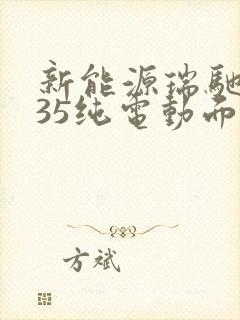 新能源瑞馳
35纯電動而
方斌